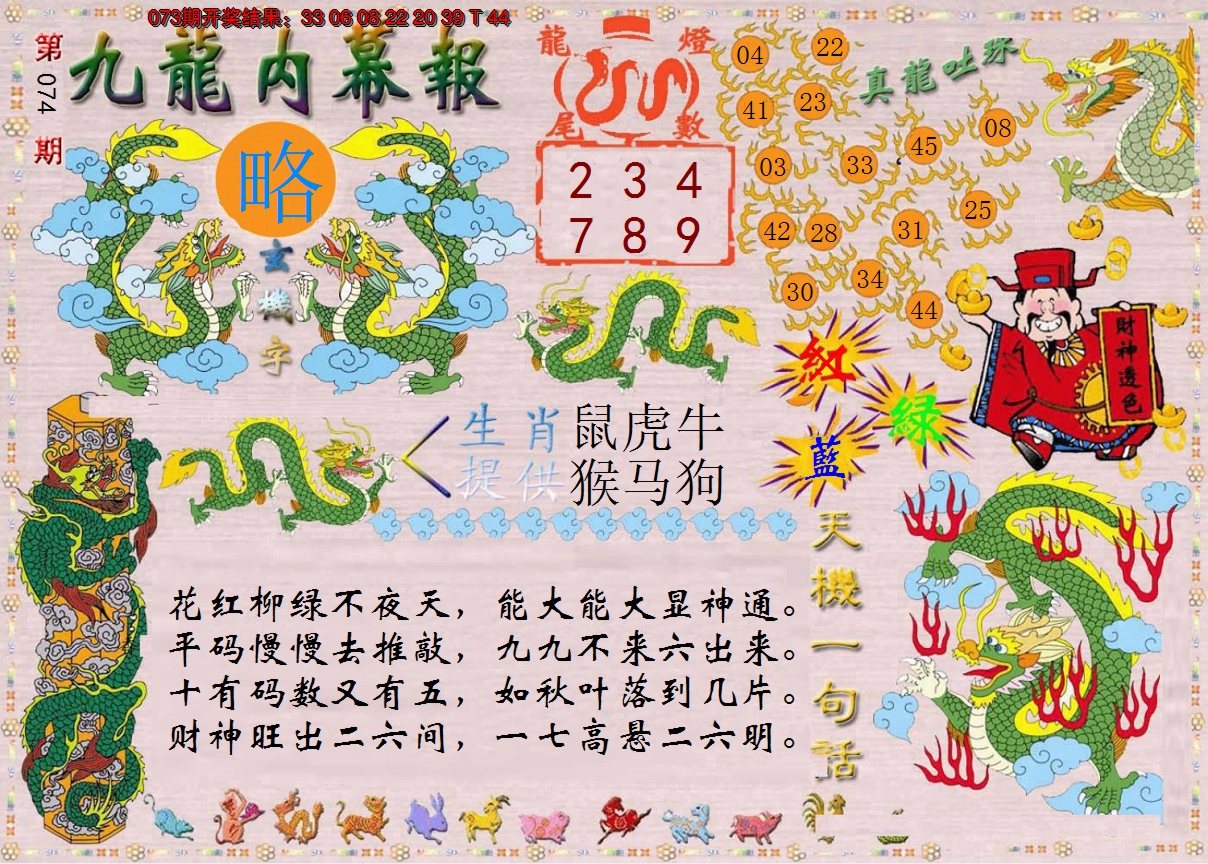 073期开奖结果：33 06 08 22 20 39 T 44
第074期
九龍内幕報
略
玄機字
龍燈尾數
2 3 4
7 8 9
真龍吐珠
04 22
41 23
03 33 45 08
42 28 31 25
30 34 44
紅
绿
藍
財神透色
生肖提供
鼠虎牛
猴马狗
天機一句話
花红柳绿不夜天，能大能大显神通。
平码慢慢去推敲，九九不来六出来。
十有码数又有五，如秋叶落到几片。
财神旺出二六间，一七高悬二六明。